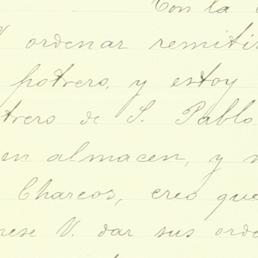 Con la
V ordenar remitir
potrero, y estoy
trero de S. Pablo
en almacen, y
Charcos, creo que
rese V. dar sus orde